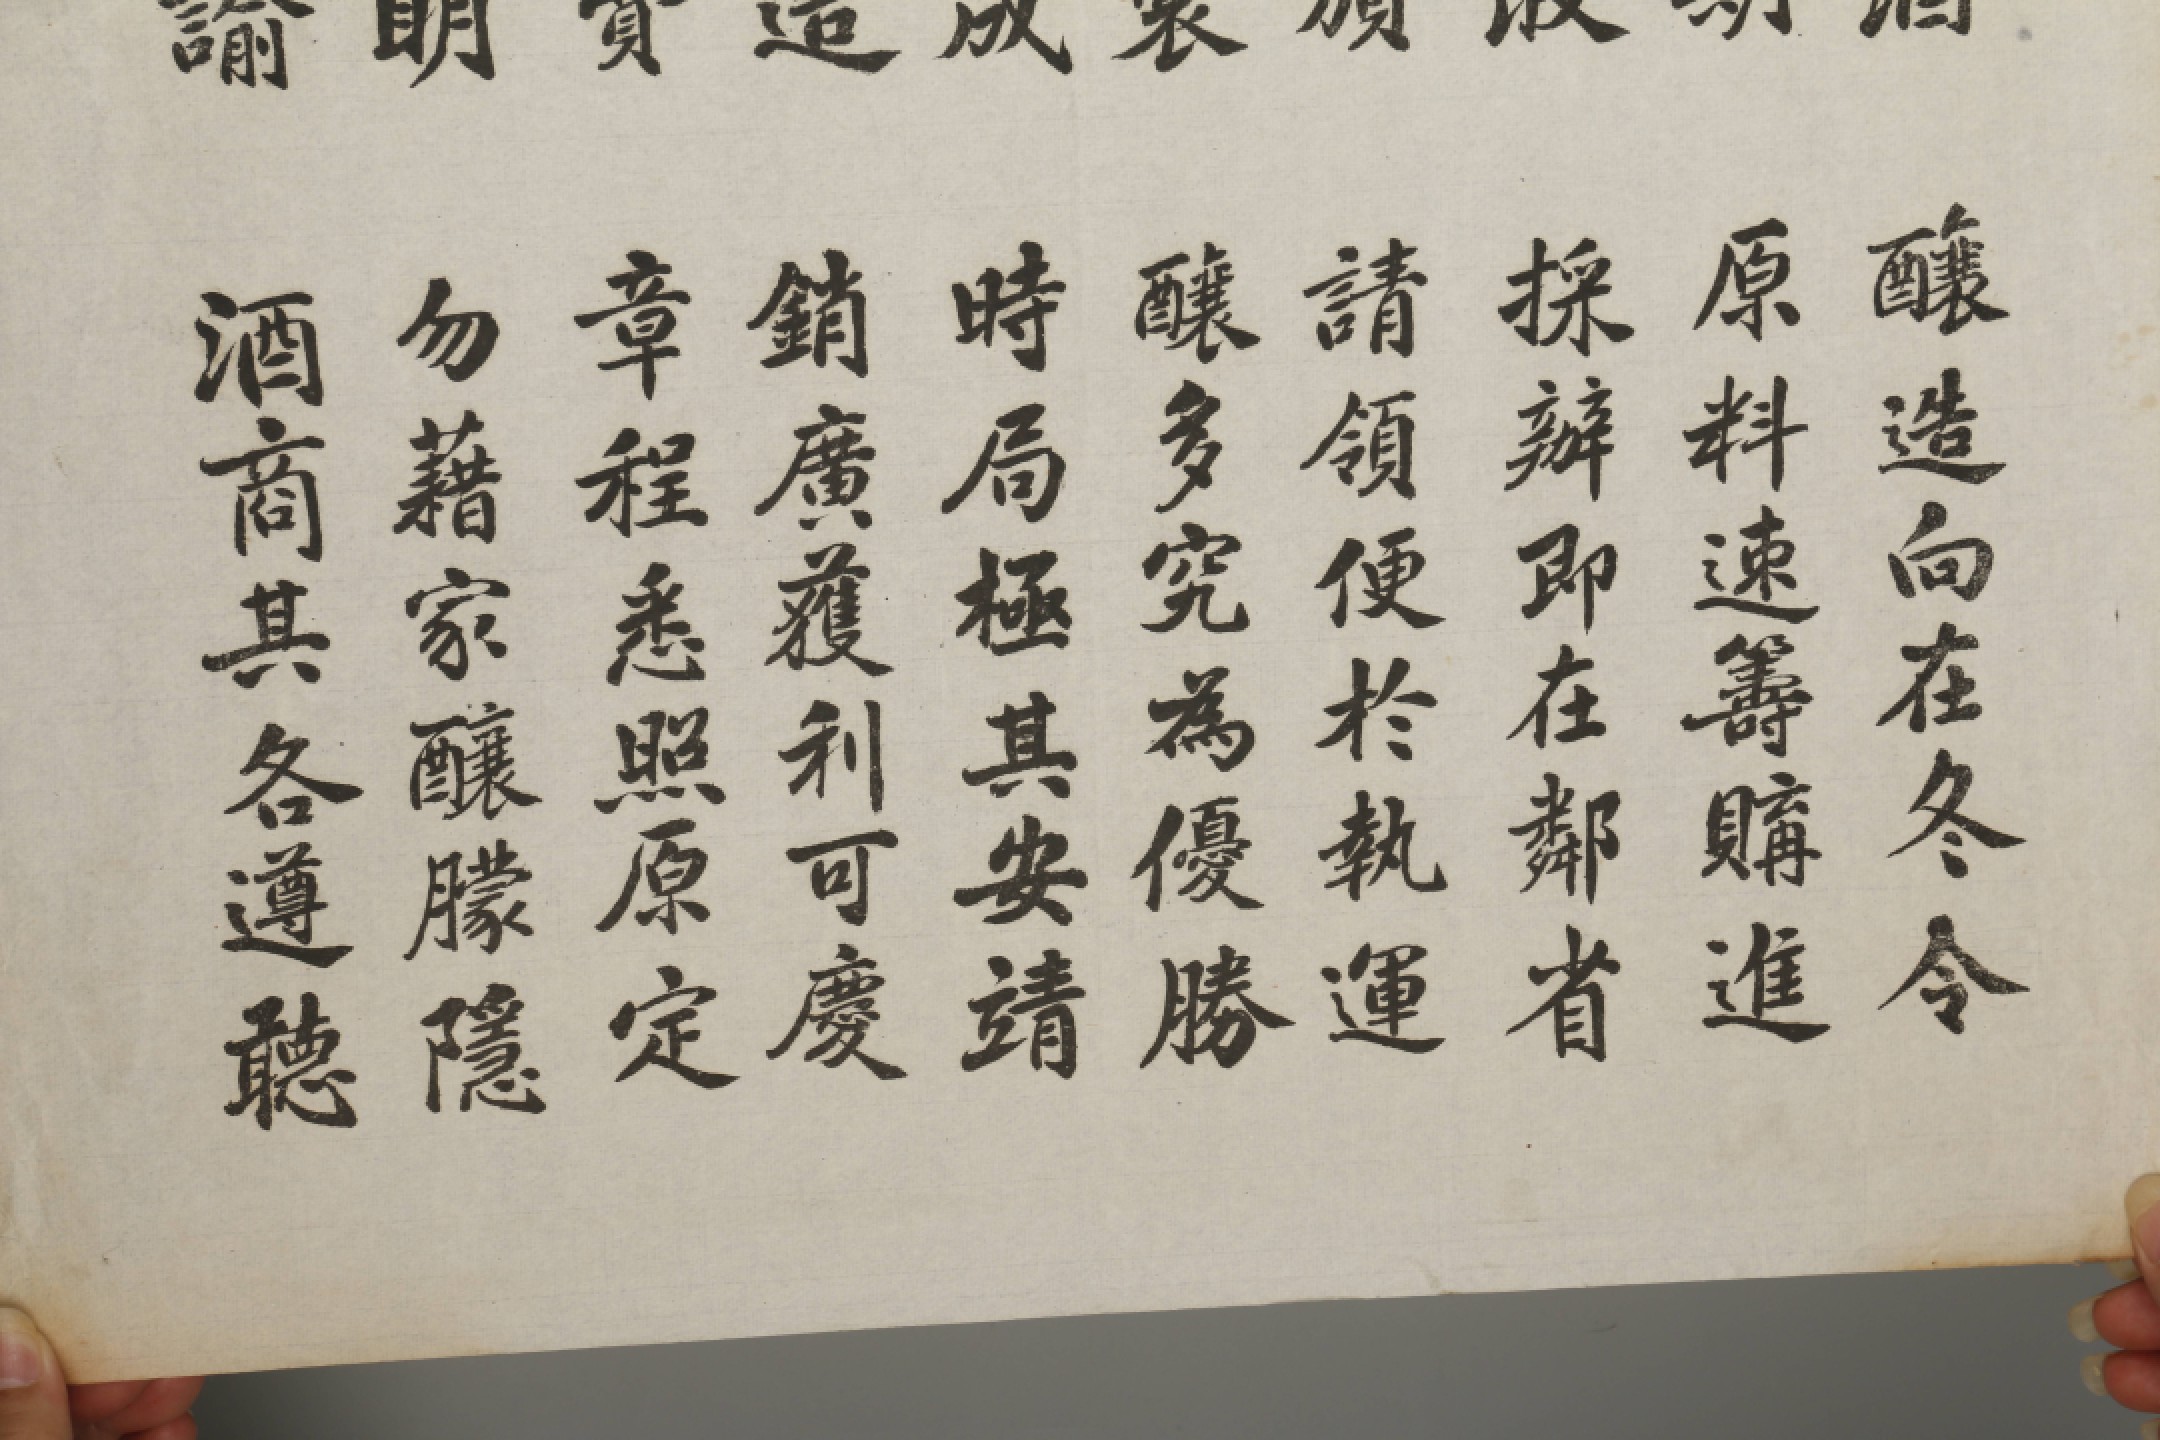 酒 釀造向在冬令
原料速籌購進
採辦即在鄰省
請領便於執運
釀多究為優勝
成 時局極其安靖
造 銷廣獲利可慶
章程悉照原定
明 勿藉家釀朦隱
諭 酒商其各遵聽